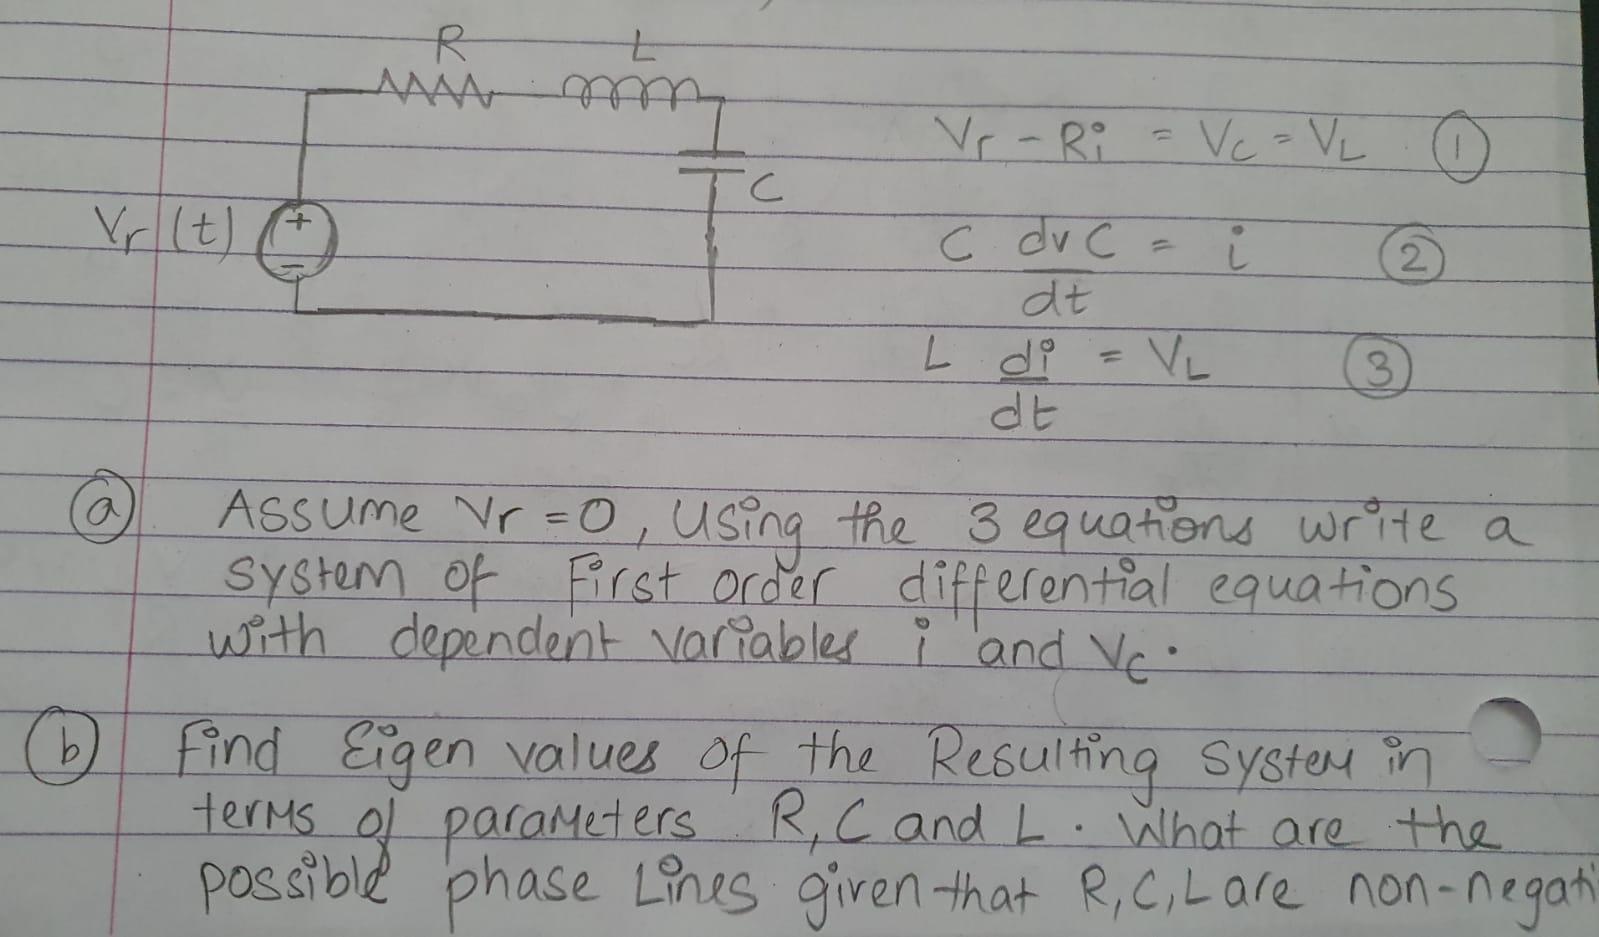 R L
Vr - Ri = Vc = VL ①
C
Vr(t) + -
C dvC = i ②
dt
L di = VL ③
dt
ⓐ Assume Vr = 0, Using the 3 equations write a
system of First order differential equations
with dependent variables i and Vc.
ⓑ Find Eigen values of the Resulting System in
terms of parameters R, C and L. What are the
possible phase Lines given that R, C, L are non-negati